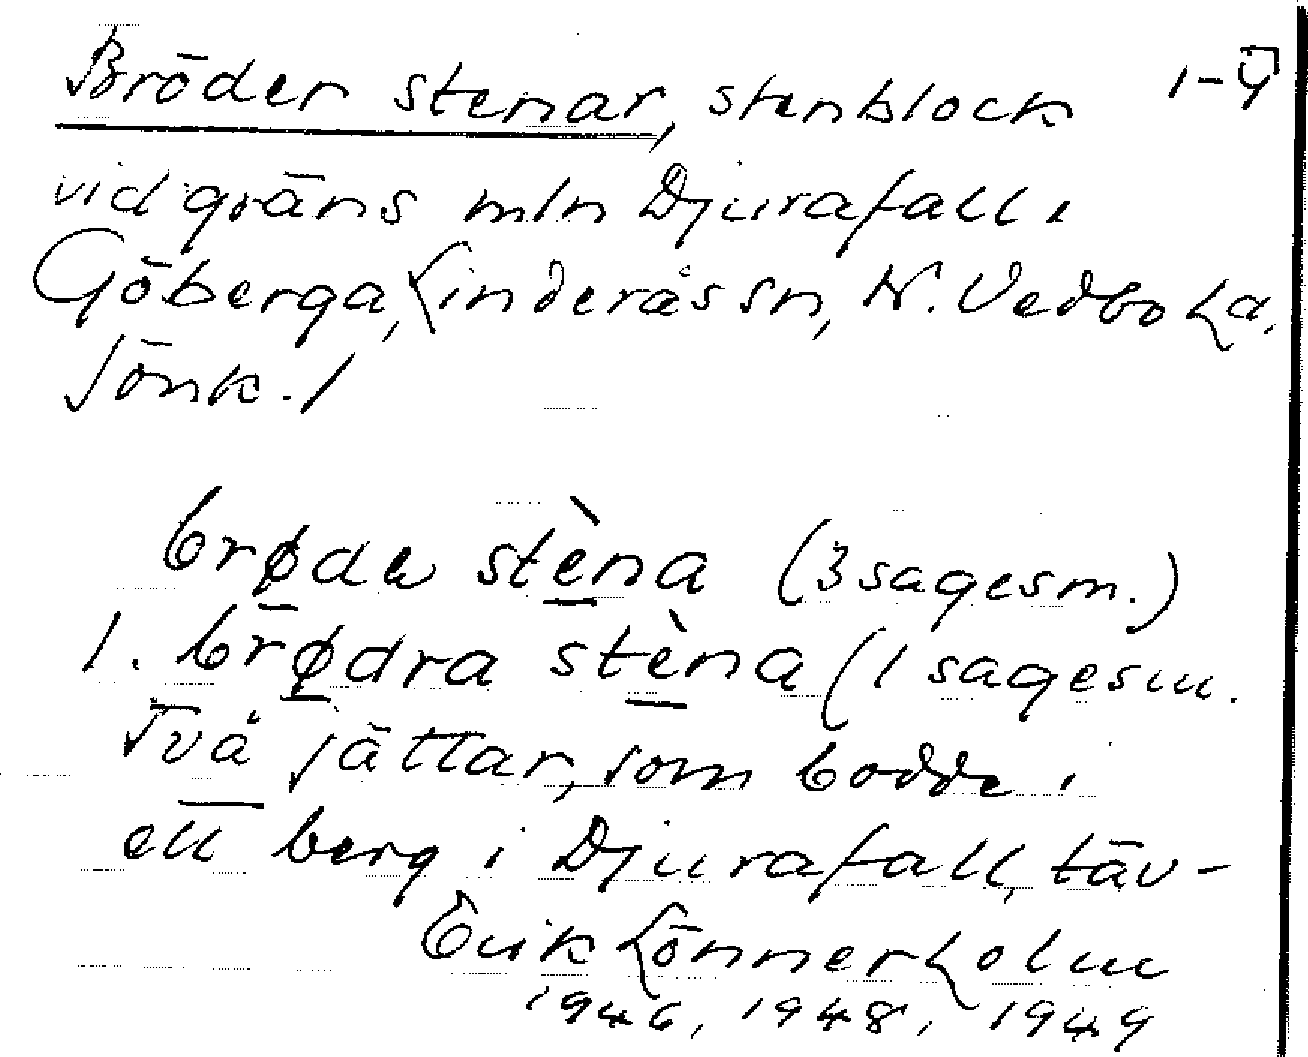 Bröder stenar, stenblock 1-4
vid gräns mln Djurafall i
Göberga, Linderås sn, N. Vedbo hd,
Jönk. l
brøda stèna (3 sagesm.)
1. brødra stèna (1 sagesm.
Två jättar, som bodde i
ett berg i Djurafall, täv-
Erik Lönnerholm
1946, 1948, 1949